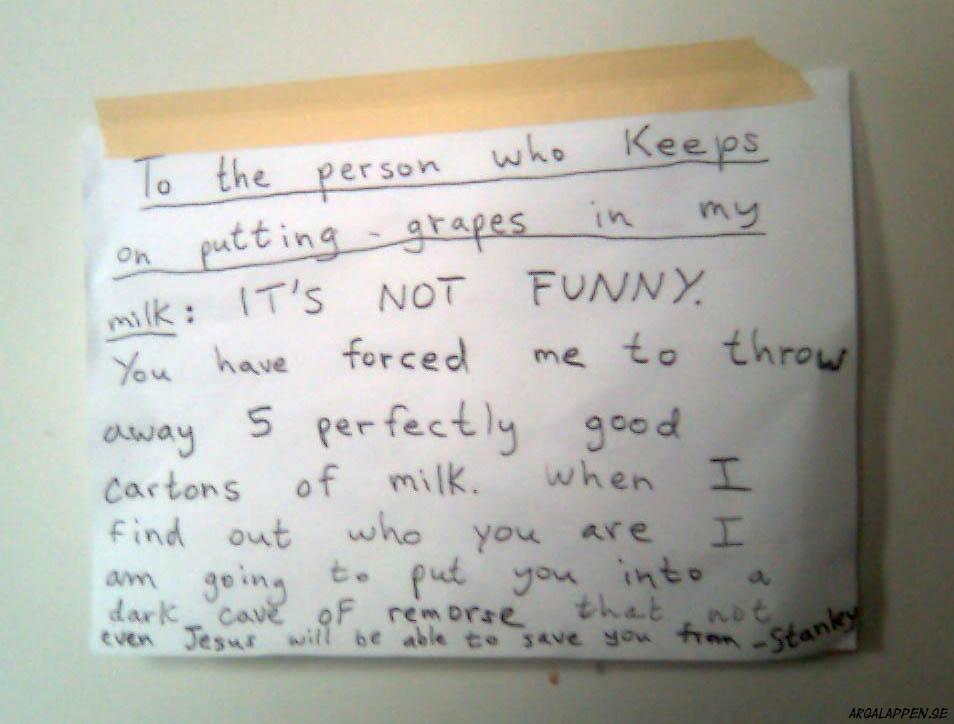 To the person who Keeps
on putting - grapes in my
milk: IT'S NOT FUNNY.
You have forced me to throw
away 5 perfectly good
cartons of milk. When I
find out who you are I
am going to put you into a
dark cave of remorse that not
even Jesus will be able to save you from -Stanley
ARGALAPPEN.SE